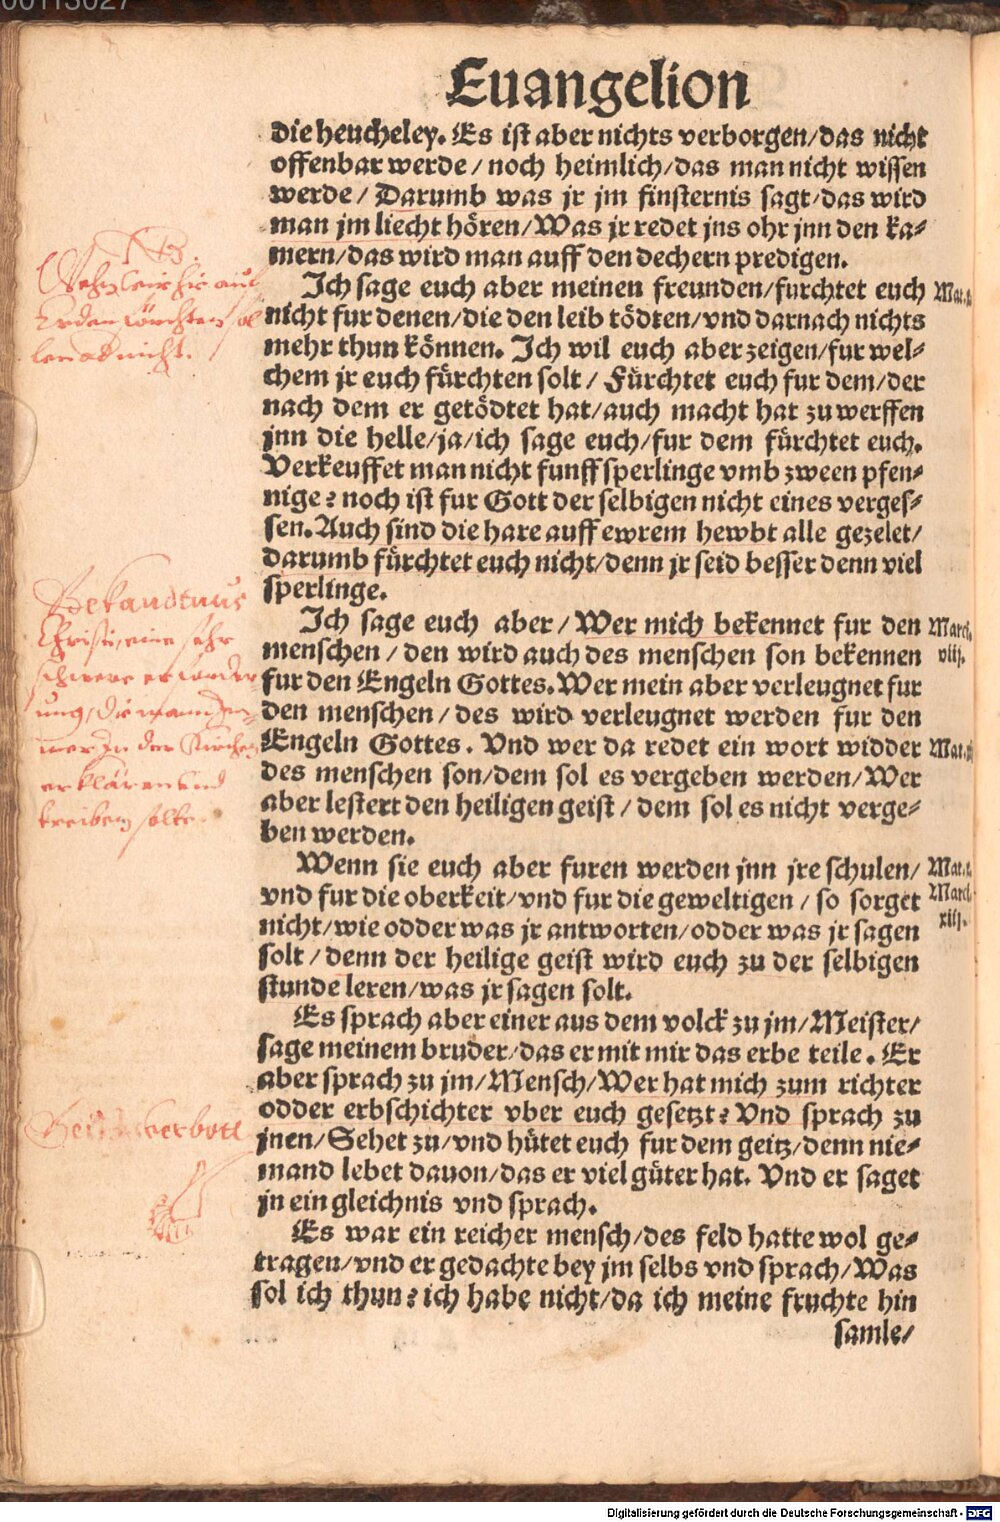 00113027
Euangelion
die heucheley. Es ist aber nichts verborgen/das nicht
offenbar werde / noch heimlich/das man nicht wissen
werde / Darumb was jr jm finsternis sagt/das wird
man jm liecht hören/Was jr redet jns ohr jnn den ka⸗
mern/das wird man auff den dechern predigen.
Ich sage euch aber meinen freunden/furchtet euch
nicht fur denen/die den leib tödten/vnd darnach nichts
mehr thun können. Ich wil euch aber zeigen/fur wel⸗
chem jr euch fürchten solt / Fürchtet euch fur dem/der
nach dem er getödtet hat/auch macht hat zu werffen
jnn die helle/ja/ich sage euch/fur dem fürchtet euch.
Verkeuffet man nicht funff sperlinge vmb zween pfen⸗
nige? noch ist fur Gott der selbigen nicht eines verges⸗
sen. Auch sind die hare auff ewrem hewbt alle gezelet/
darumb fürchtet euch nicht/denn jr seid besser denn viel
sperlinge.
Ich sage euch aber / Wer mich bekennet fur den
menschen / den wird auch des menschen son bekennen
fur den Engeln Gottes. Wer mein aber verleugnet fur
den menschen / des wird verleugnet werden fur den
Engeln Gottes. Vnd wer da redet ein wort widder
des menschen son/dem sol es vergeben werden/Wer
aber lestert den heiligen geist / dem sol es nicht verge⸗
ben werden.
Wenn sie euch aber furen werden jnn jre schulen/
vnd fur die oberkeit/vnd fur die geweltigen / so sorget
nicht/wie odder was jr antworten/odder was jr sagen
solt / denn der heilige geist wird euch zu der selbigen
stunde leren/was jr sagen solt.
Es sprach aber einer aus dem volck zu jm/Meister/
sage meinem bruder/das er mit mir das erbe teile. Er
aber sprach zu jm/Mensch/Wer hat mich zum richter
odder erbschichter vber euch gesetzt? Vnd sprach zu
jnen/Sehet zu/vnd hütet euch fur dem geitz/denn nie⸗
mand lebet dauon/das er viel güter hat. Vnd er saget
jn ein gleichnis vnd sprach.
Es war ein reicher mensch/des feld hatte wol ge⸗
tragen/vnd er gedachte bey jm selbs vnd sprach/Was
sol ich thun? ich habe nicht/da ich meine fruchte hin
samle/
Marci.
viij.
Marci.
xiij.
NB.
Bekandtnus
Christi, eine sehr
schwere
erklären und
treiben solte
Digitalisierung gefördert durch die Deutsche Forschungsgemeinschaft - DFG